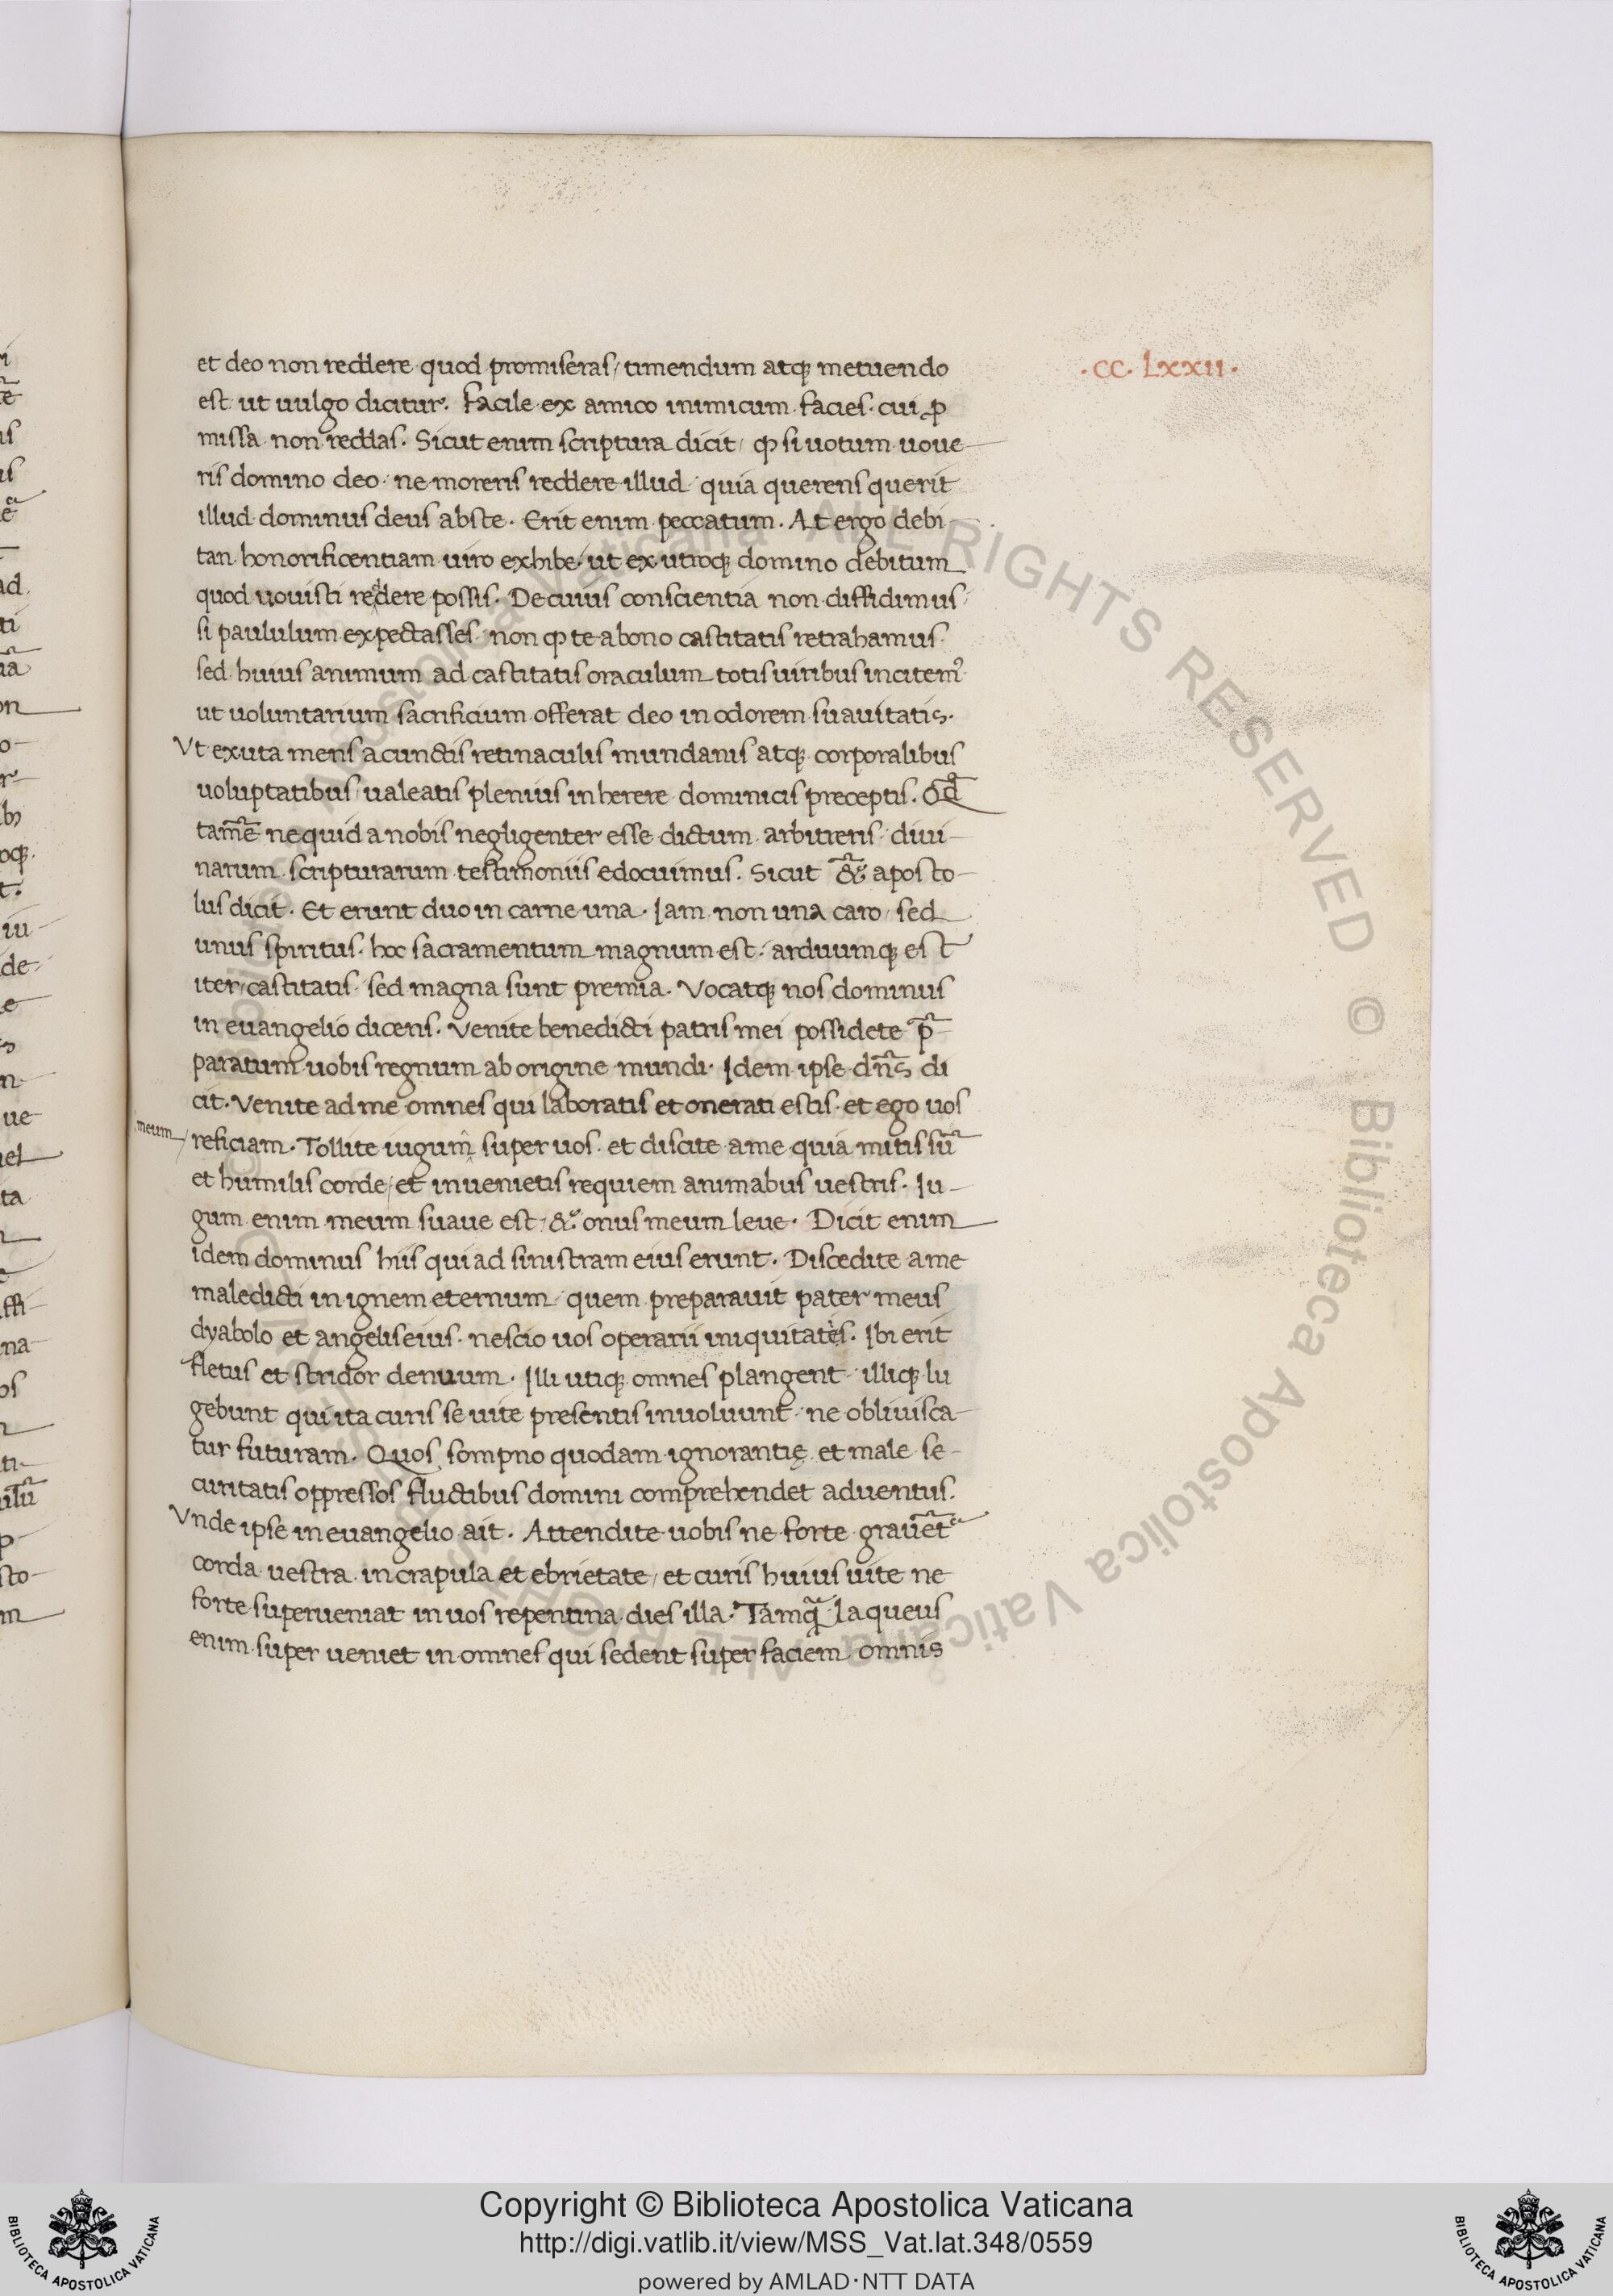 .CC. Lxxii.
et deo non reddere quod promiseras/ timendum atq; metuendo
est ut uulgo dicitur. Facile ex amico inimicum facies. cui ꝓ
missa non reddas. Sicut enim scriptura dicit/ ꝙ si uotum uoue-
ris domino deo. ne moreris reddere illud quia querens querit
illud dominus deus abste. Erit enim peccatum. At ergo debi-
tan honorificentiam uiro exhibe. ut ex utroq; domino debitum
quod uouisti reddere possis. De cuius conscientia non diffidimus
si paululum expectasses. non ꝙ te abono castitatis retrahamus.
sed huius animum ad castitatis oraculum totis uiribus incitemꝰ
ut uoluntarium sacrificium offerat deo in odorem suauitatis.
Vt exuta mens a cunctis retinaculis mundanis atq; corporalibus
uoluptatibus/ ualeatis plenius inherere dominicis preceptis. Qd̄
tam̄e nequid a nobis negligenter esse dictum arbitreris. diui-
narum scripturarum testimoniis edocuimus. Sicut & aposto-
lus dicit. Et erunt duo in carne una. Iam non una caro/ sed
unus spiritus. hoc sacramentum magnum est. arduumq; est
iter castitatis. sed magna sunt premia. Vocatq; nos dominus
in euangelio dicens. Venite benedicti patris mei possidete p̄-
paratum uobis regnum ab origine mundi. Idem ipse dn̄s di
cit. Venite ad me omnes qui laboratis et onerati estis. et ego uos
meum/ reficiam. Tollite iugum super uos. et discite ame quia mitis sū
et humilis corde/ et inuenietis requiem animabus uestris. Iu-
gum enim meum suaue est. & onus meum leue. Dicit enim
idem dominus hiis qui ad sinistram eius erunt. Discedite ame
maledicti in ignem eternum quem preparauit pater meus
dyabolo et angelis eius. nescio uos operarii iniquitates. Ibi erit
fletus et stridor dentium. Illi utiq; omnes plangent illiq; lu
gebunt qui ita curis se uite presentis inuoluunt. ne obliuisca-
tur futuram. Quos sompno quodam ignorantię et male se-
curitatis oppressos fluctibus domini comprehendet aduentus.
Vnde ipse in euangelio ait. Attendite uobis ne forte grauēt
corda uestra in crapula et ebrietate/ et curis huius uite ne
forte superueniat in uos repentina dies illa. Tamq̄ laqueus
enim super ueniet in omnes qui sedent super faciem omnis
Copyright © Biblioteca Apostolica Vaticana
http://digi.vatlib.it/view/MSS_Vat.lat.348/0559
powered by AMLAD·NTT DATA
BIBLIOTECA APOSTOLICA VATICANA
BIBLIOTECA APOSTOLICA VATICANA